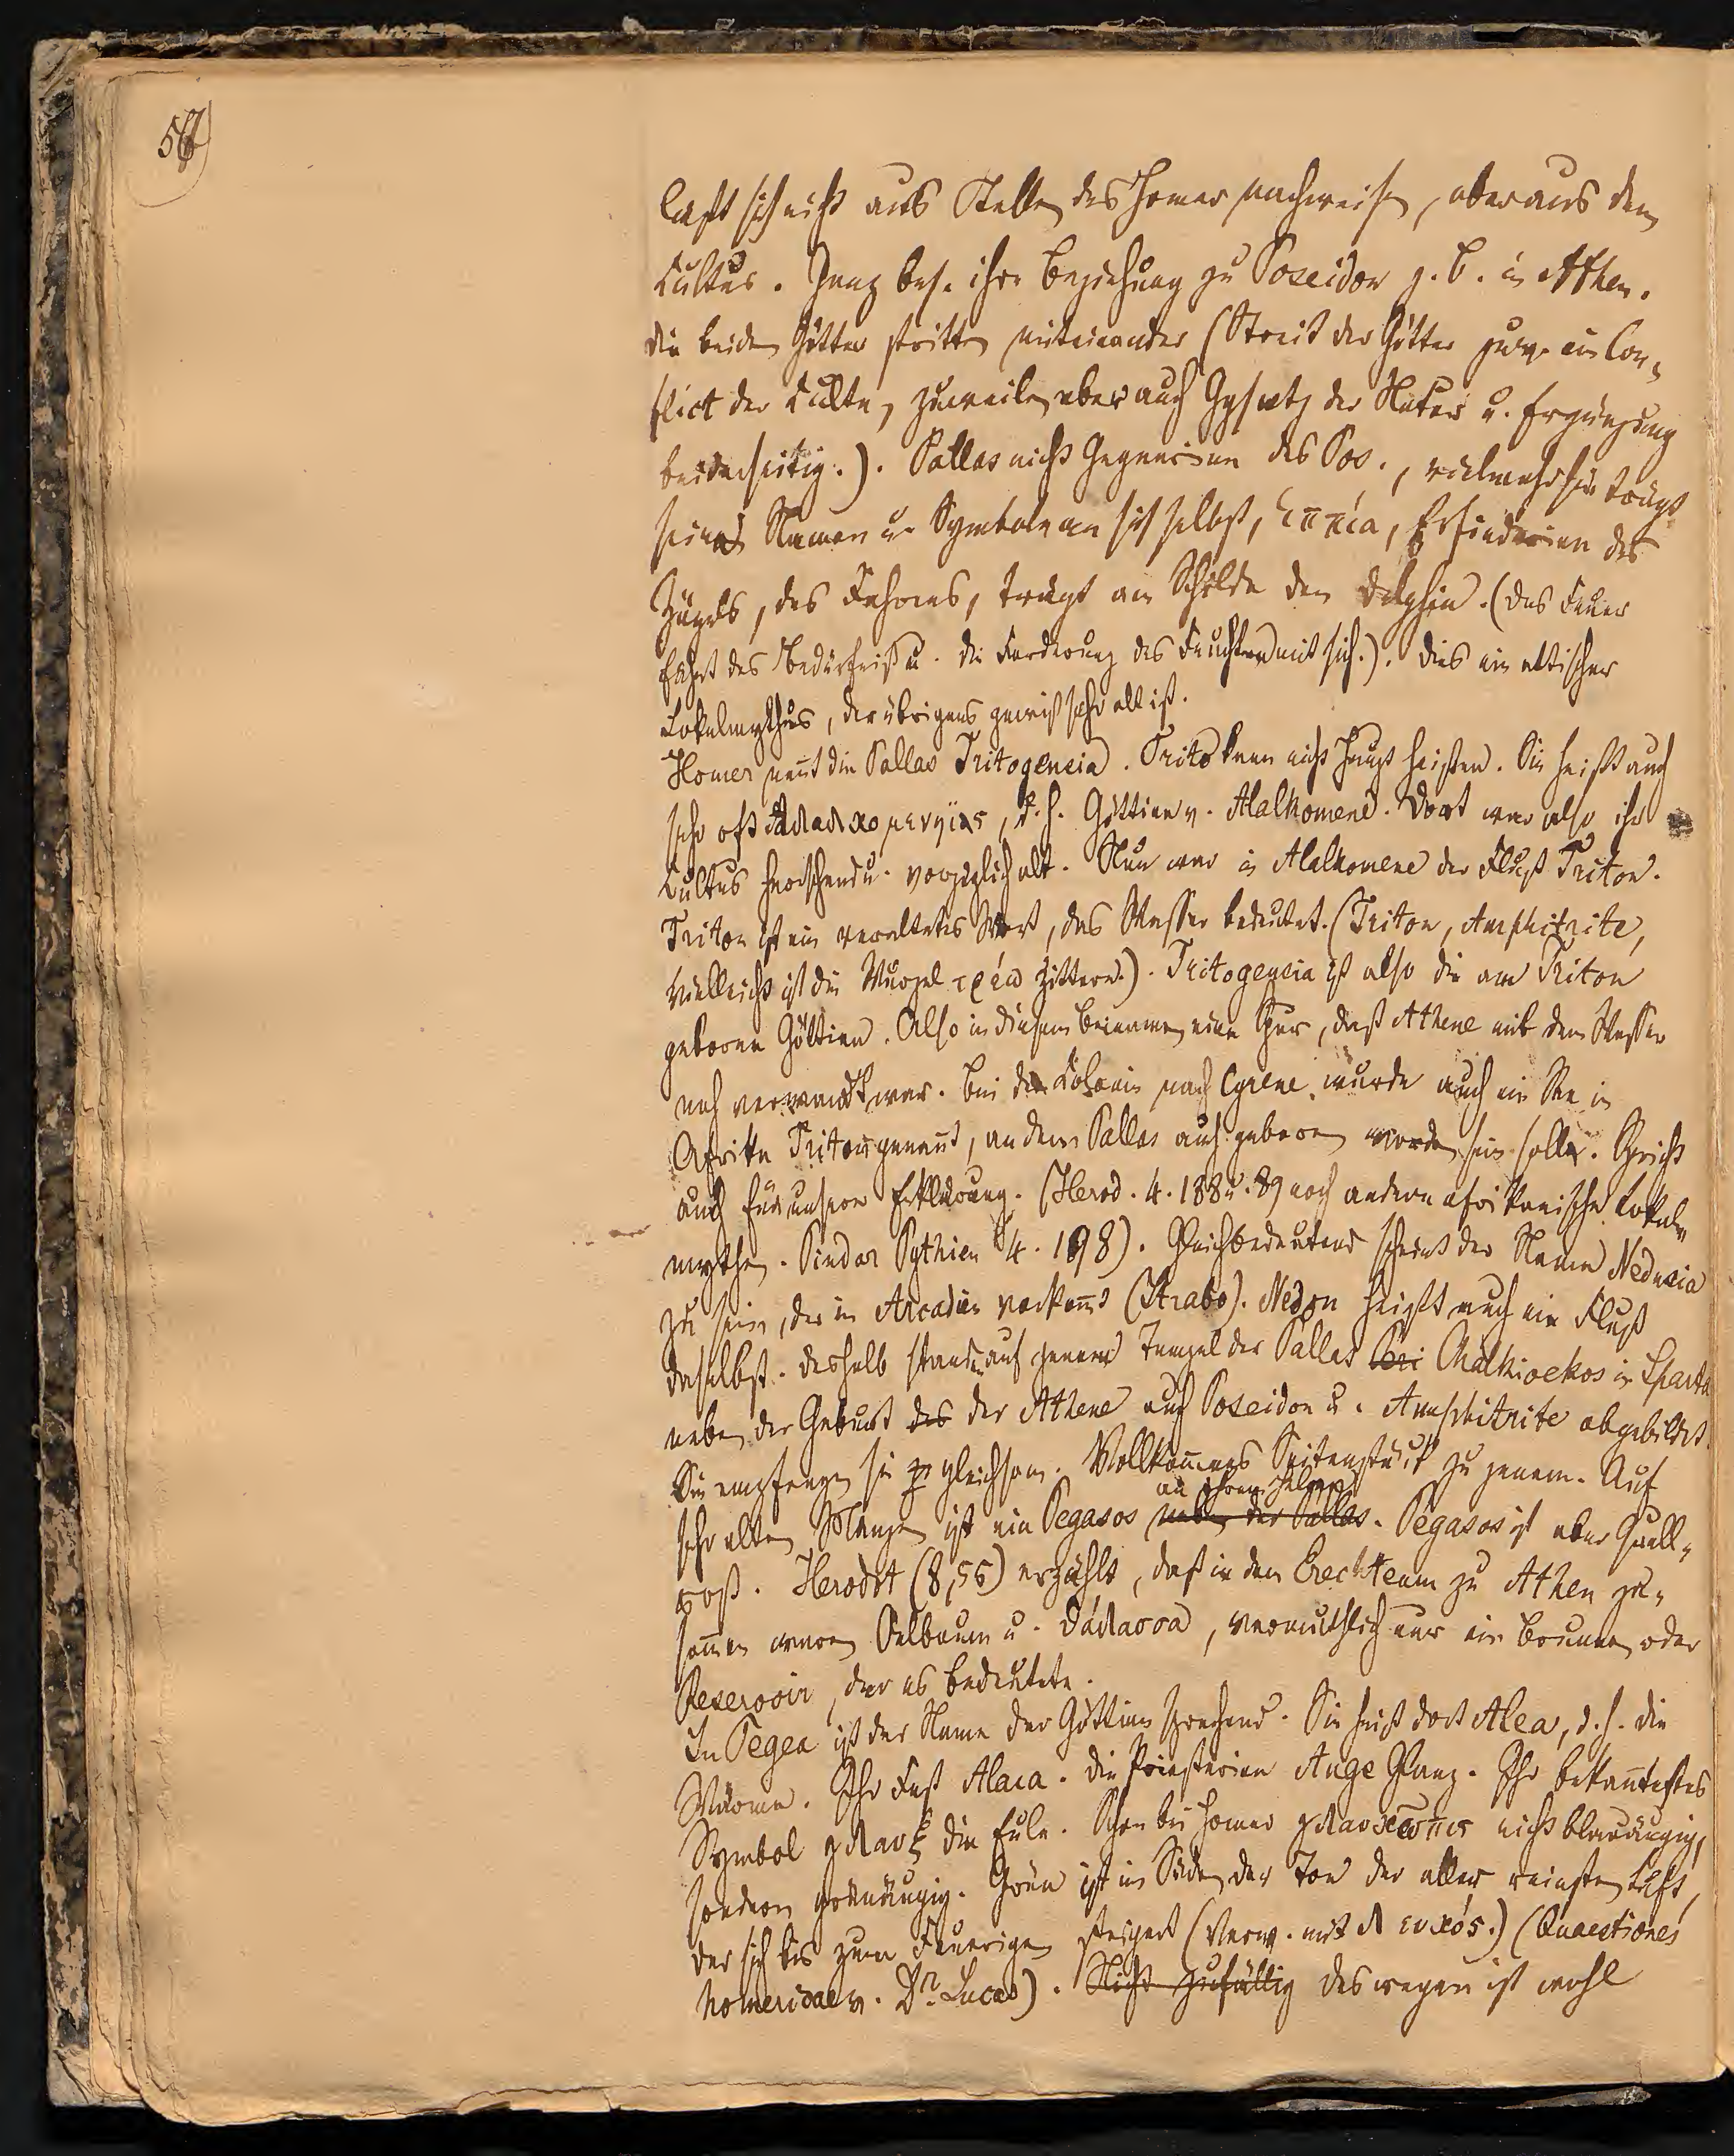 56
läßt sich nicht aus Stellen des Homer nachweisen, aber aus dem
Kultus. Ganz bes. ihre Beziehung zu Poseidon z. b. in Athen.
die beiden Götter stritten miteinander (Streit der Götter zuw. ein Con-
flict der Kulte, zuweilen aber auch Ggsatz der Natur u. Ergänzung
beiderseitig.). Pallas nicht Gegnerinn des Pos., vielmehr sie trägt
seine Namen u. Symbole an sich selbst, ἱππία, Erfinderinn des
Zügels, des Fahrens, trägt am Schilde den Delphin. (das Feuer
führt das Bedürfniß u. die Forderung des Feuchten mit sich.). dies ein attischer
Lokalmythus, der übrigens gewiß sehr alt ist.
Homer neñt die Pallas Tritogeneia. Trito kann nicht Haupt heißen. Sie heißt auch
sehr oft Ἀλαλκομενηϊς, d. h. Göttinn v. Alalkomene. Dort war also ihr
Kultus herrschend u. vorzüglich alt. Nun war in Alalkomene der Fluß Triton.
Triton ist ein veraltetes Wort, das Wasser bedeutet. (Triton, Amphitrite,
vielleicht ist die Wurzel τρέω zittern.). Tritogeneia ist also die am Triton
geborne Göttinn. Also in diesem Beinamen eine Spur, daß Athene mit dem Wasser
nah verwandt war. bei der Kolonie nach Cyrene wurde auch ein See in
Afrika Triton genañt, an dem Pallas auch geboren worden sein sollte. Spricht
auch für unsere Erklärung. (Herod. 4. 188 u. 89 noch andere afrikanische Lokal-
mythen. Pindar Pythien 4. 198). Gleichbedeutend scheint der Name Nedusia
zu sein, der in Arcadien vorkom̃t (Strabo). Nedon heißt auch ein Fluß
daselbst. deshalb standen auf jenem Tempel der Pallas bei Chalkioekos in Sparta
neben der Geburt des der Athene auch Poseidon u. Amphitrite abgebildet.
Sie empfangen sie gleichsam. Vollkom̃nes Seitenstück zu jenem. Auf
an ihrem Helm
sehr alten Münzen ist ein Pegasos neben der Pallas. Pegasos ist aber Quell-
roß. Herodot (8,55) erzählt, daß in dem Erechteum zu Athen zu-
sam̃en waren Oelbaum u. θάλασσα, vermuthlich nur ein Brunnen oder
Reservoir, der es bedeutete.
In Tegea ist der Name der Göttinn sprechend. Sie heißt dort Alea, d. h. die
Wärme. Ihr Fest Alaea. die Priesterinn Auge Glanz. Ihr bekañtestes
Symbol γλαυξ die Eule. Schon bei Homer γλαυκῶπις nicht blauäugig,
sondern grünäugig. Grün ist im Süden der Ton der aller reinsten Luft,
der sich bis zum Feuerigen steigert (Verw. mit λευκός.) (Quaestiones
homeridae v. Dr. Lucas). Nicht zufällig deswegen ist wohl